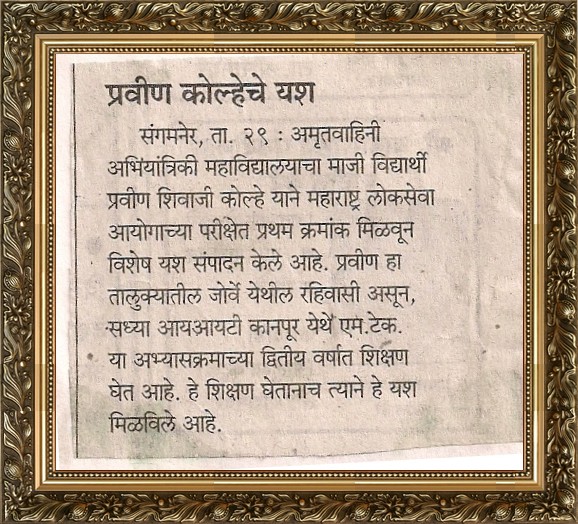 प्रवीण कोल्हेचे यश
संगमनेर, ता. २९ : अमृतवाहिनी
अभियांत्रिकी महाविद्यालयाचा माजी विद्यार्थी
प्रवीण शिवाजी कोल्हे याने महाराष्ट्र लोकसेवा
आयोगाच्या परीक्षेत प्रथम क्रमांक मिळवून
विशेष यश संपादन केले आहे. प्रवीण हा
तालुक्यातील जोर्वे येथील रहिवासी असून,
सध्या आयआयटी कानपूर येथे एम.टेक.
या अभ्यासक्रमाच्या द्वितीय वर्षात शिक्षण
घेत आहे. हे शिक्षण घेतानाच त्याने हे यश
मिळविले आहे.